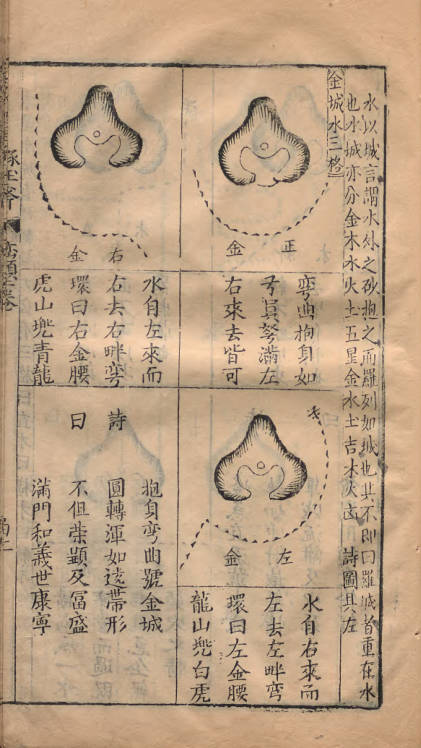 水以城言謂水外之砂抱之而羅列如城也其不即曰羅城者重在水
也水城亦分金木水火土五星金水土吉木火凶 詩圖具左
金城水三格
正金
彎曲抱身如
弓員弩滿左
右來去皆可
右金
水自左來而
右去右畔彎
環曰右金腰
虎山兜青龍
左金
水自右來而
左去左畔彎
環曰左金腰
龍山兜白虎
詩曰
抱身彎曲號金城
圓轉渾如遶帶形
不但榮顯及冨盛
滿門和義世康寧